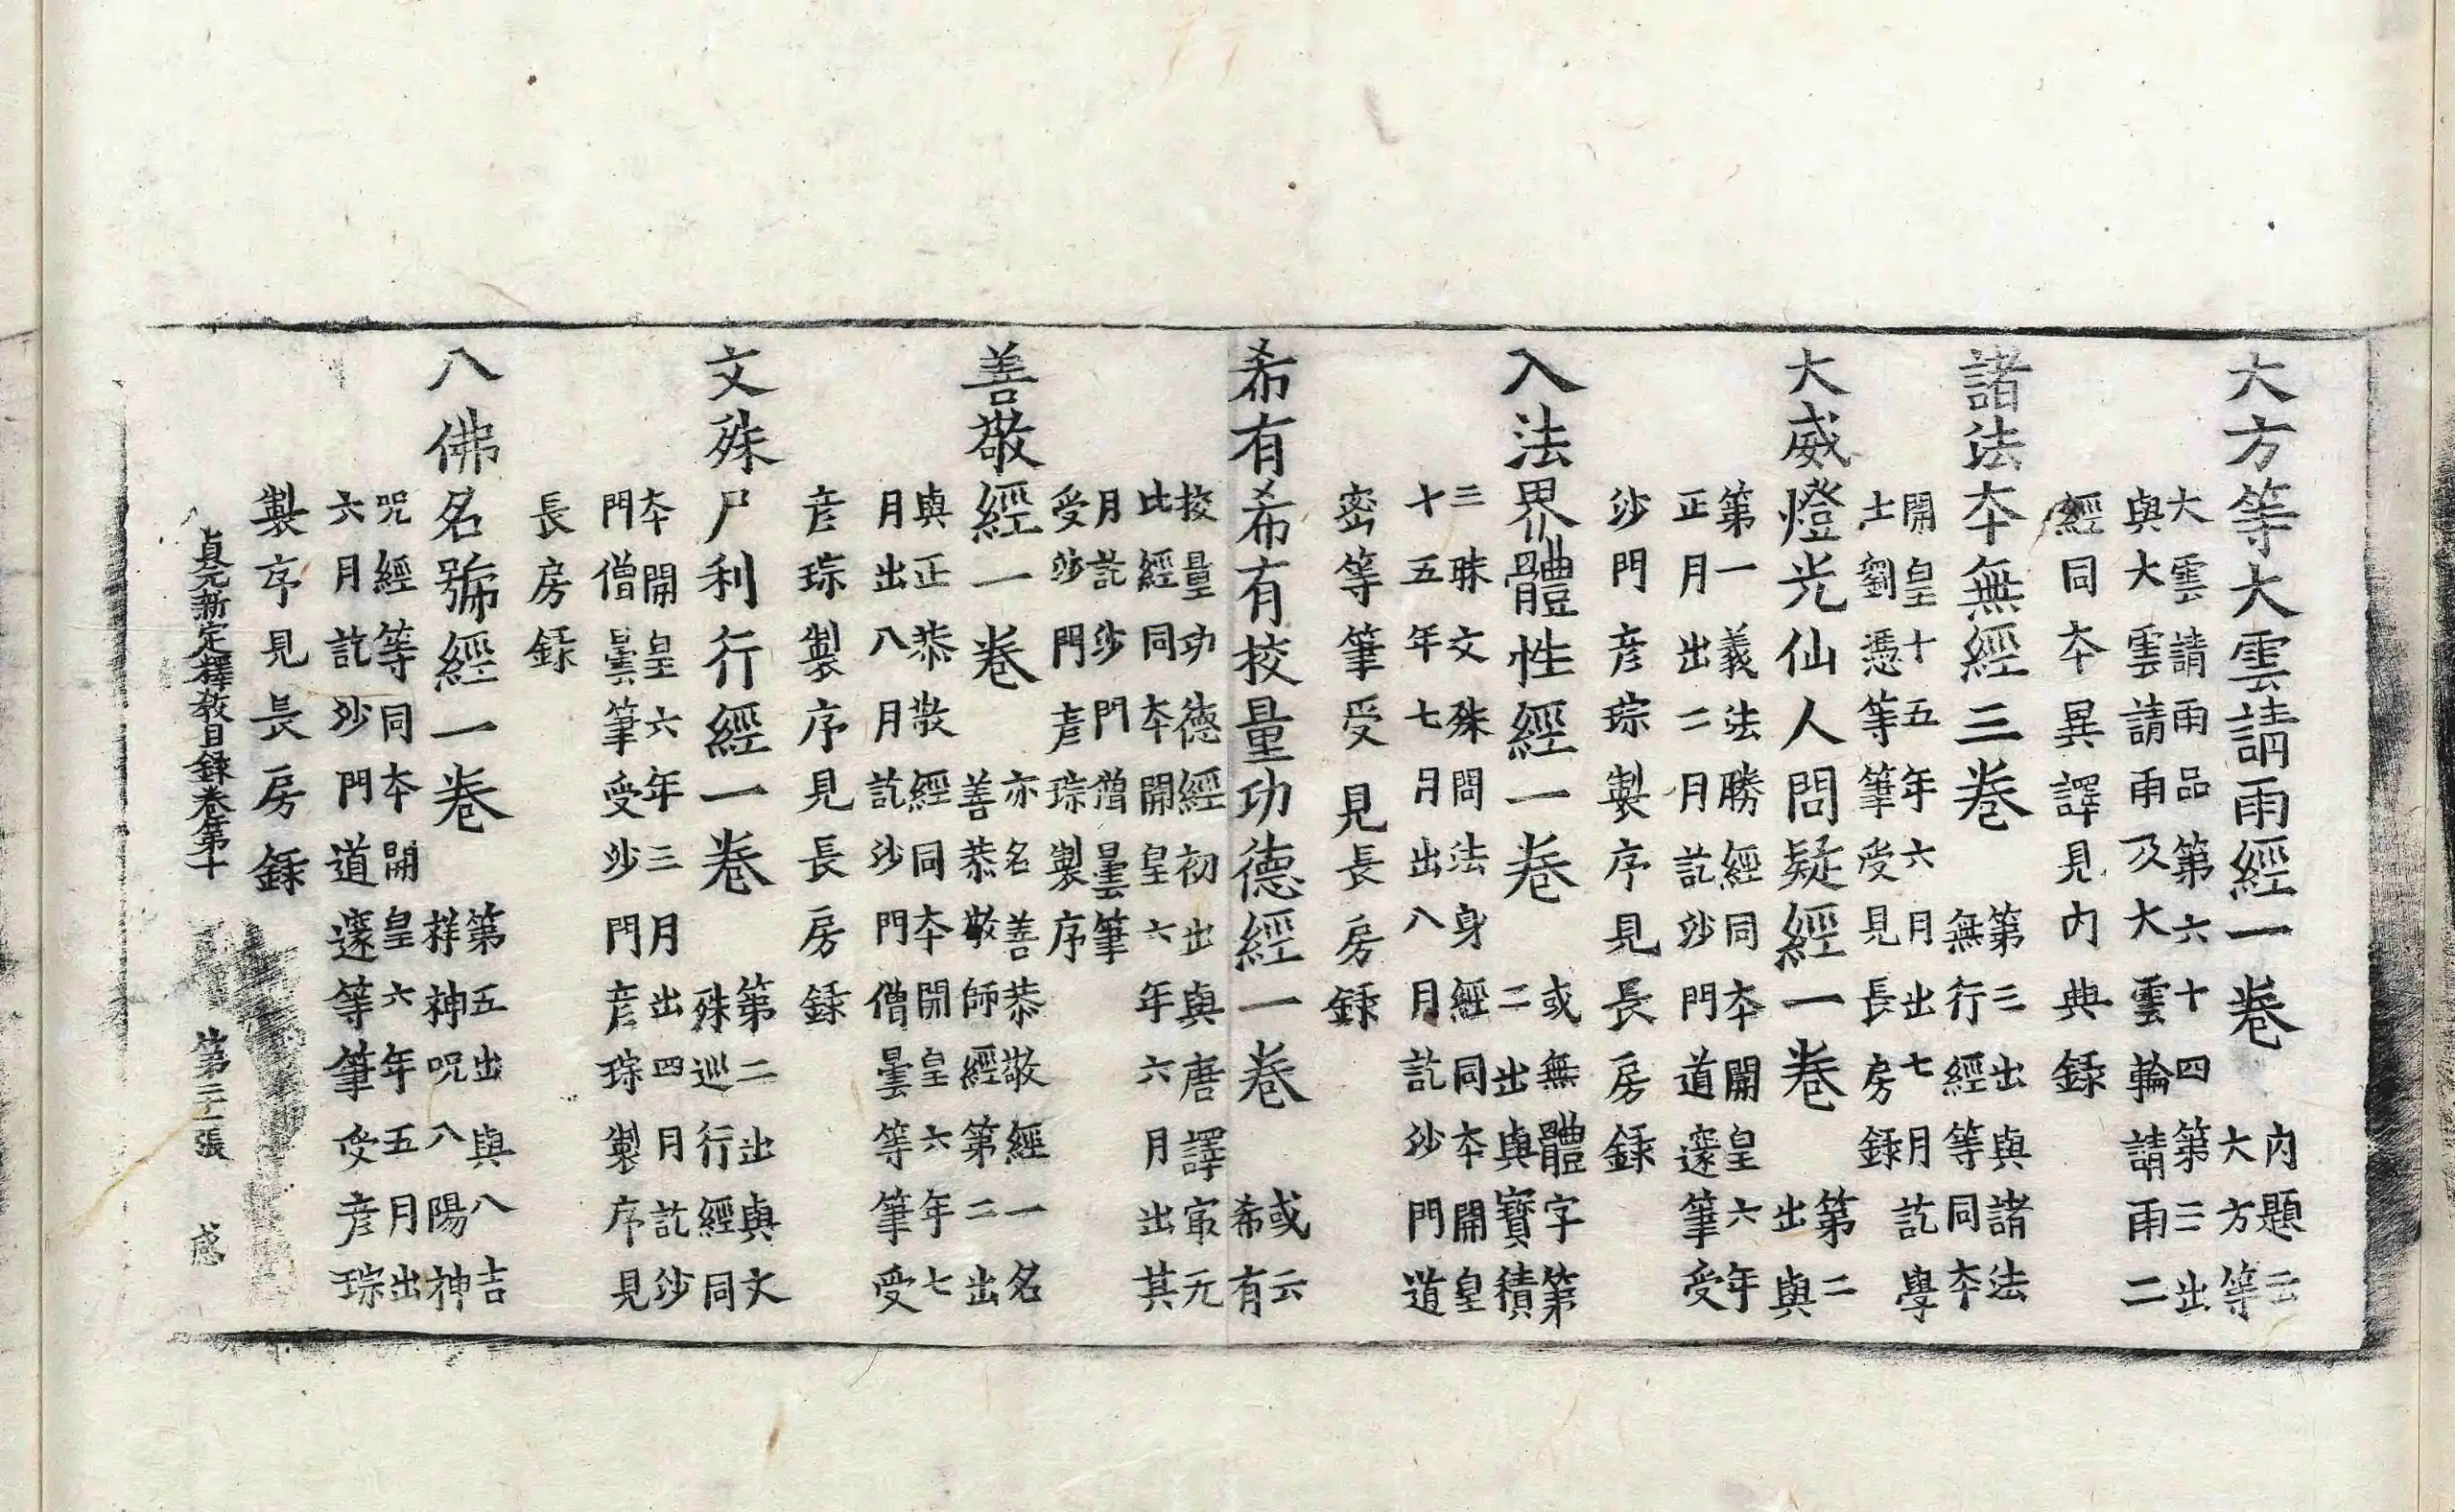 大方等大雲請雨經一卷
內題云
大方等
大雲請雨品第六十四第三出
與大雲請雨及大雲輪請雨二
經同本異譯見內典錄
諸法本無經三卷
第三出與諸法
無行經等同本
開皇十五年六月出七月訖學
士劉憑等筆受見長房錄
大威燈光仙人問疑經一卷
第二
出與
第一義法勝經同本開皇六年
正月出二月訖沙門道邃筆受
沙門彥琮製序見長房錄
入法界體性經一卷
或無體字第
二出與寶積
三昧文殊問法身經同本開皇
十五年七月出八月訖沙門道
密等筆受見長房錄
希有希有挍量功德經一卷
或云
希有
挍量功德經初出與唐譯冣无
比經同本開皇六年六月出其
月訖沙門僧曇筆
受沙門彥琮製序
善敬經一卷
亦名善恭敬經一名
善恭敬師經第二出
與正恭敬經同本開皇六年七
月出八月訖沙門僧曇等筆受
彥琮製序見長房錄
文殊尸利行經一卷
第二出與文
殊巡行經同
本開皇六年三月出四月訖沙
門僧曇筆受沙門彥琮製序見
長房錄
八佛名號經一卷
第五出與八吉
祥神呪八陽神
呪經等同本開皇六年五月出
六月訖沙門道邃等筆受彥琮
製序見長房錄
貞元新定釋教目錄卷第十 第 張 感